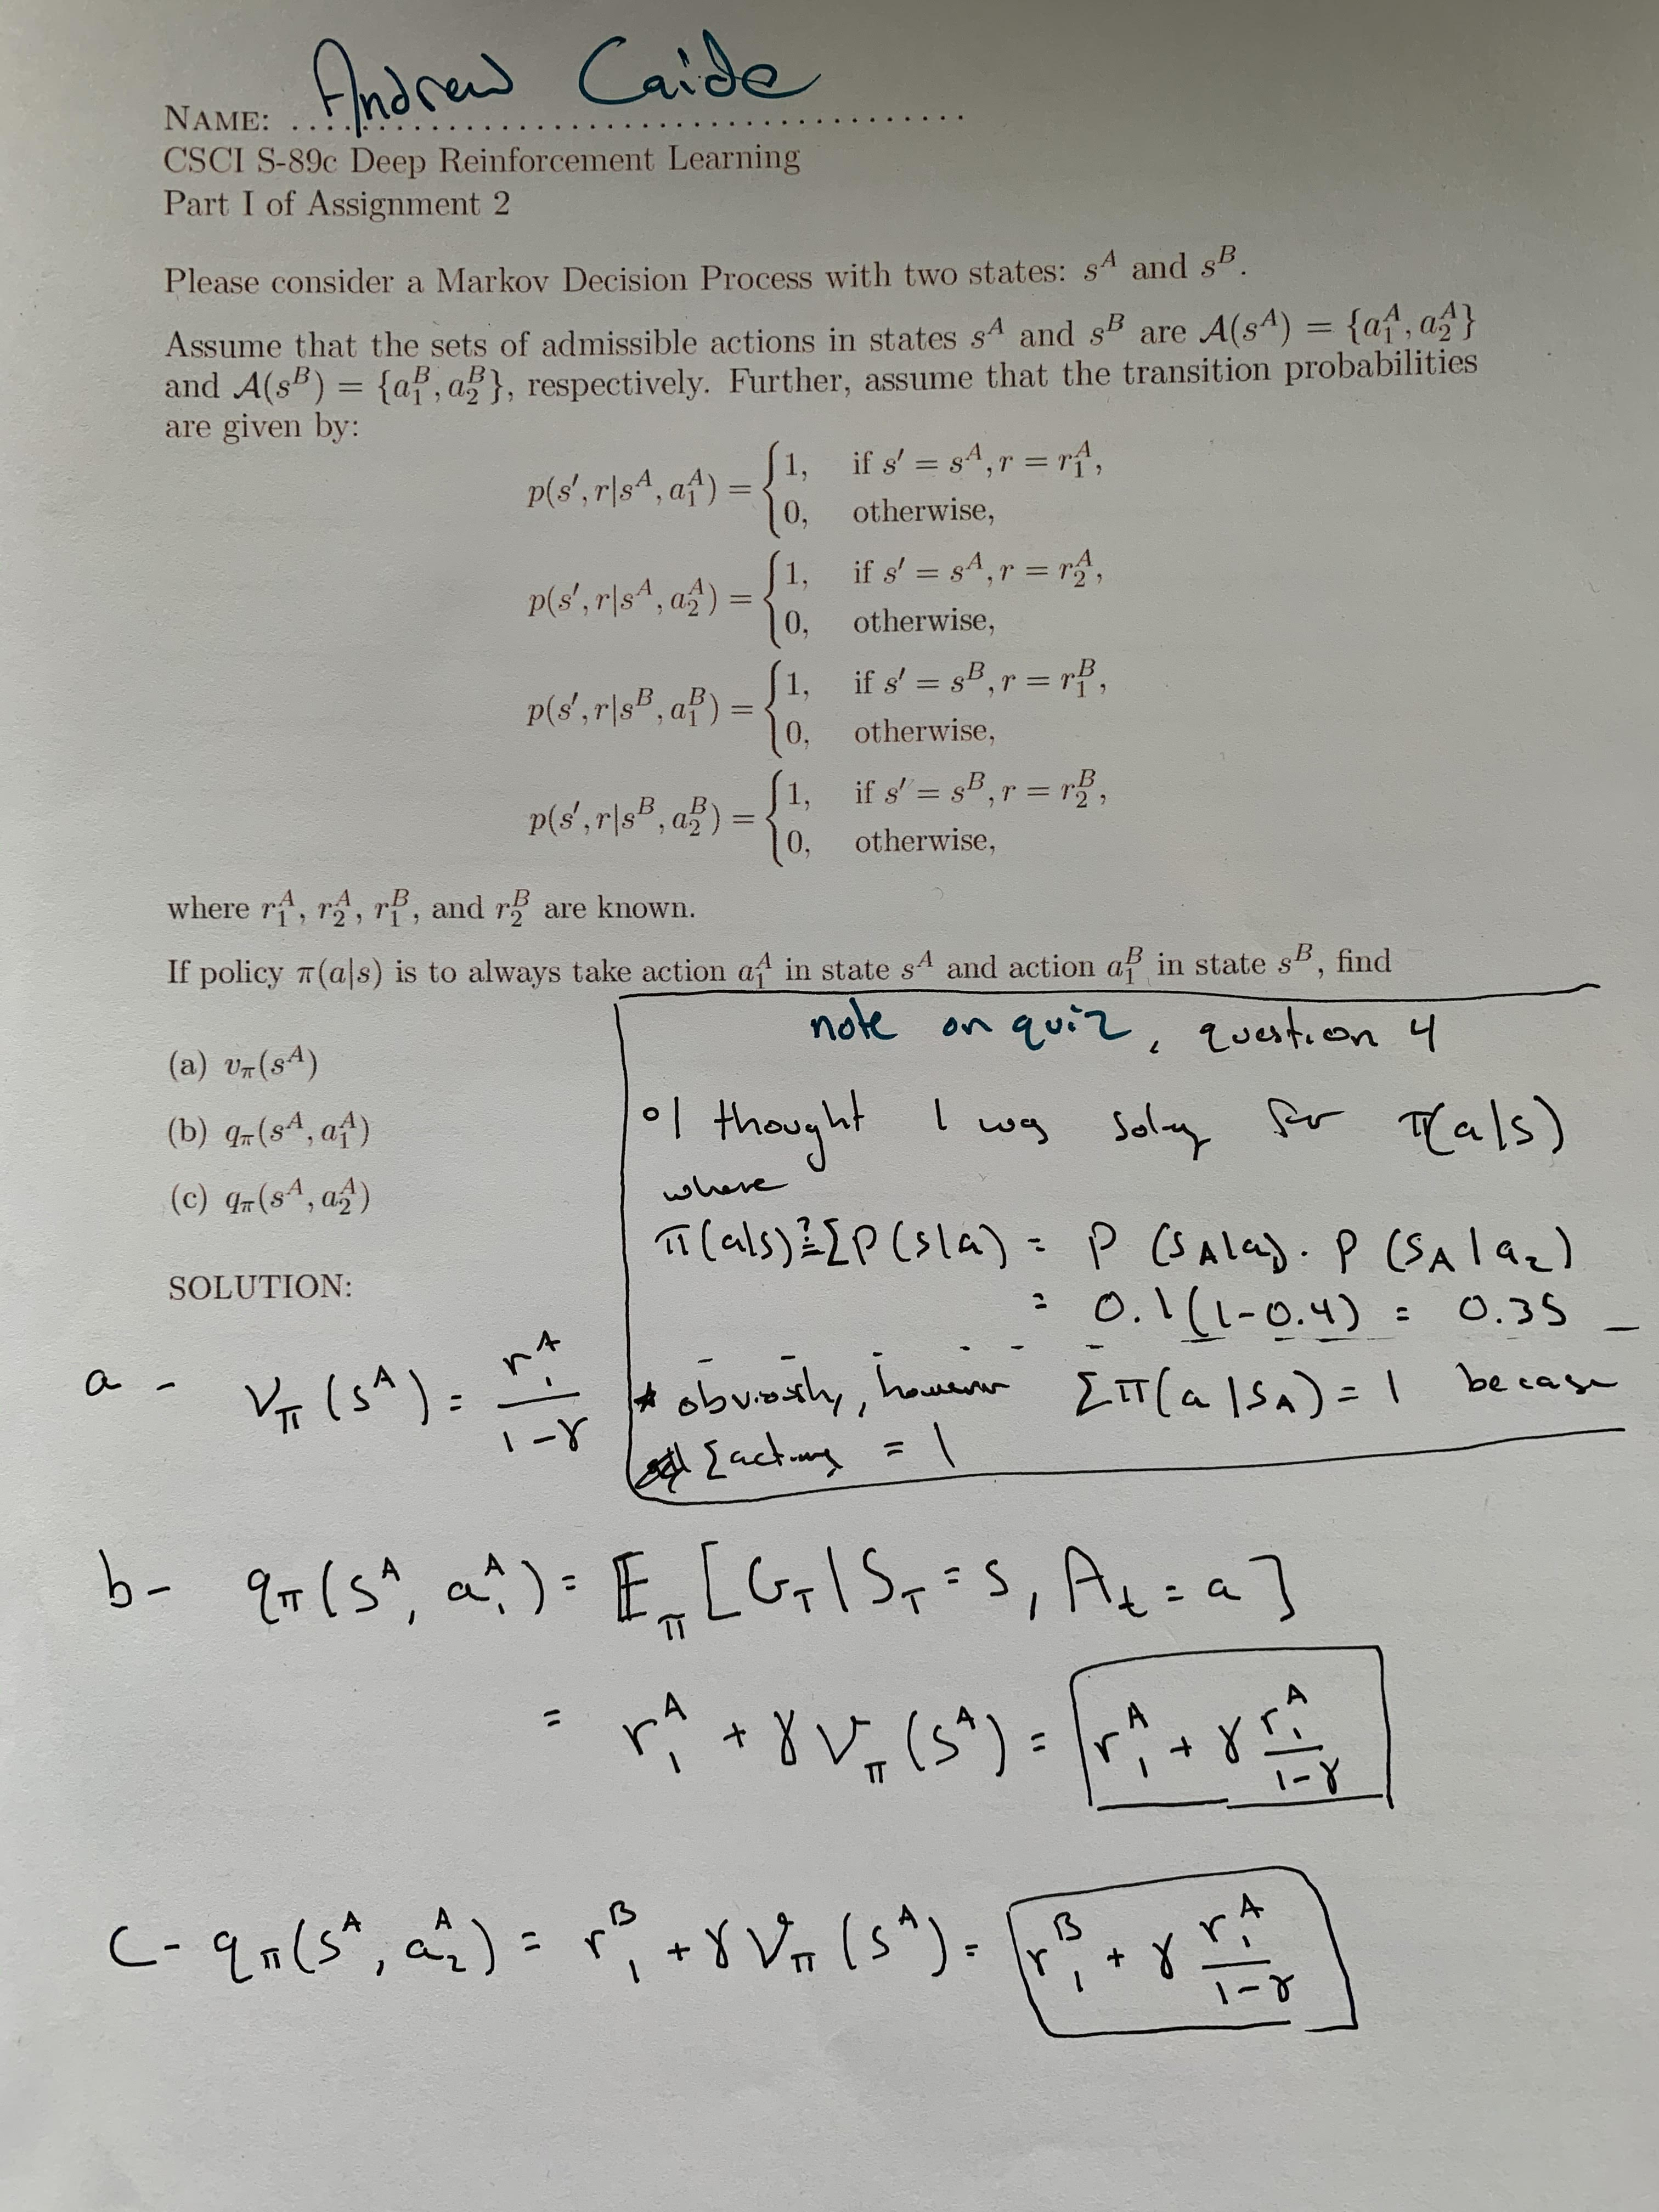 NAME: Andrew Caide
CSCI S-89c Deep Reinforcement Learning
Part I of Assignment 2
Please consider a Markov Decision Process with two states: s^A and s^B.
Assume that the sets of admissible actions in states s^A and s^B are 𝒜(s^A) = {a_1^A, a_2^A}
and 𝒜(s^B) = {a_1^B, a_2^B}, respectively. Further, assume that the transition probabilities
are given by:
p(s′, r|s^A, a_1^A) = { 1, if s′ = s^A, r = r_1^A,
0, otherwise,
p(s′, r|s^A, a_2^A) = { 1, if s′ = s^A, r = r_2^A,
0, otherwise,
p(s′, r|s^B, a_1^B) = { 1, if s′ = s^B, r = r_1^B,
0, otherwise,
p(s′, r|s^B, a_2^B) = { 1, if s′ = s^B, r = r_2^B,
0, otherwise,
where r_1^A, r_2^A, r_1^B, and r_2^B are known.
If policy π(a|s) is to always take action a_1^A in state s^A and action a_1^B in state s^B, find
(a) v_π(s^A)
(b) q_π(s^A, a_1^A)
(c) q_π(s^A, a_2^A)
note on quiz, question 4
∘ I thought I was solvg for π(a|s)
where
π(a|s) ≟ Σ P(s|a) = P(s_A|a_1) · P(s_A|a_2)
= 0.1(1-0.4) = 0.35
* obviously, however Σπ(a|s_A) = 1 because
Σ actions = 1
SOLUTION:
a - V_π(s^A) = r_1^A / (1-γ)
b - q_π(s^A, a_1^A) = 𝔼_π[G_T|S_T = s, A_t = a]
= r_1^A + γ V_π(s^A) = r_1^A + γ r_1^A / (1-γ)
c - q_π(s^A, a_2^A) = r_1^B + γ V_π(s^A) = r_1^B + γ r_1^A / (1-γ)